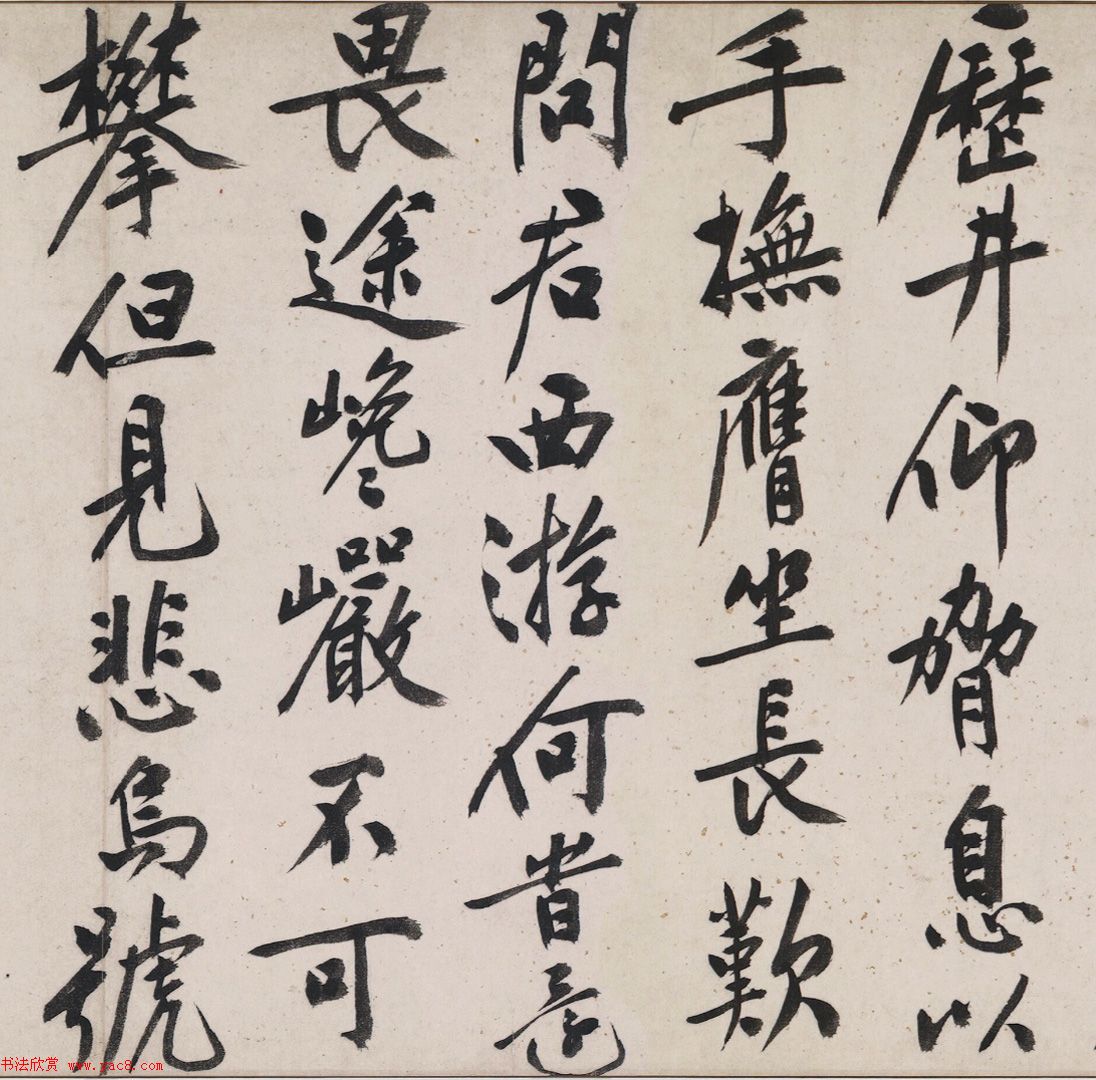 歷井仰脅息以
手撫膺坐長歎
問君西游何旹還
畏途巉巖不可
攀但見悲鳥號
书法欣赏 www.yac8.com